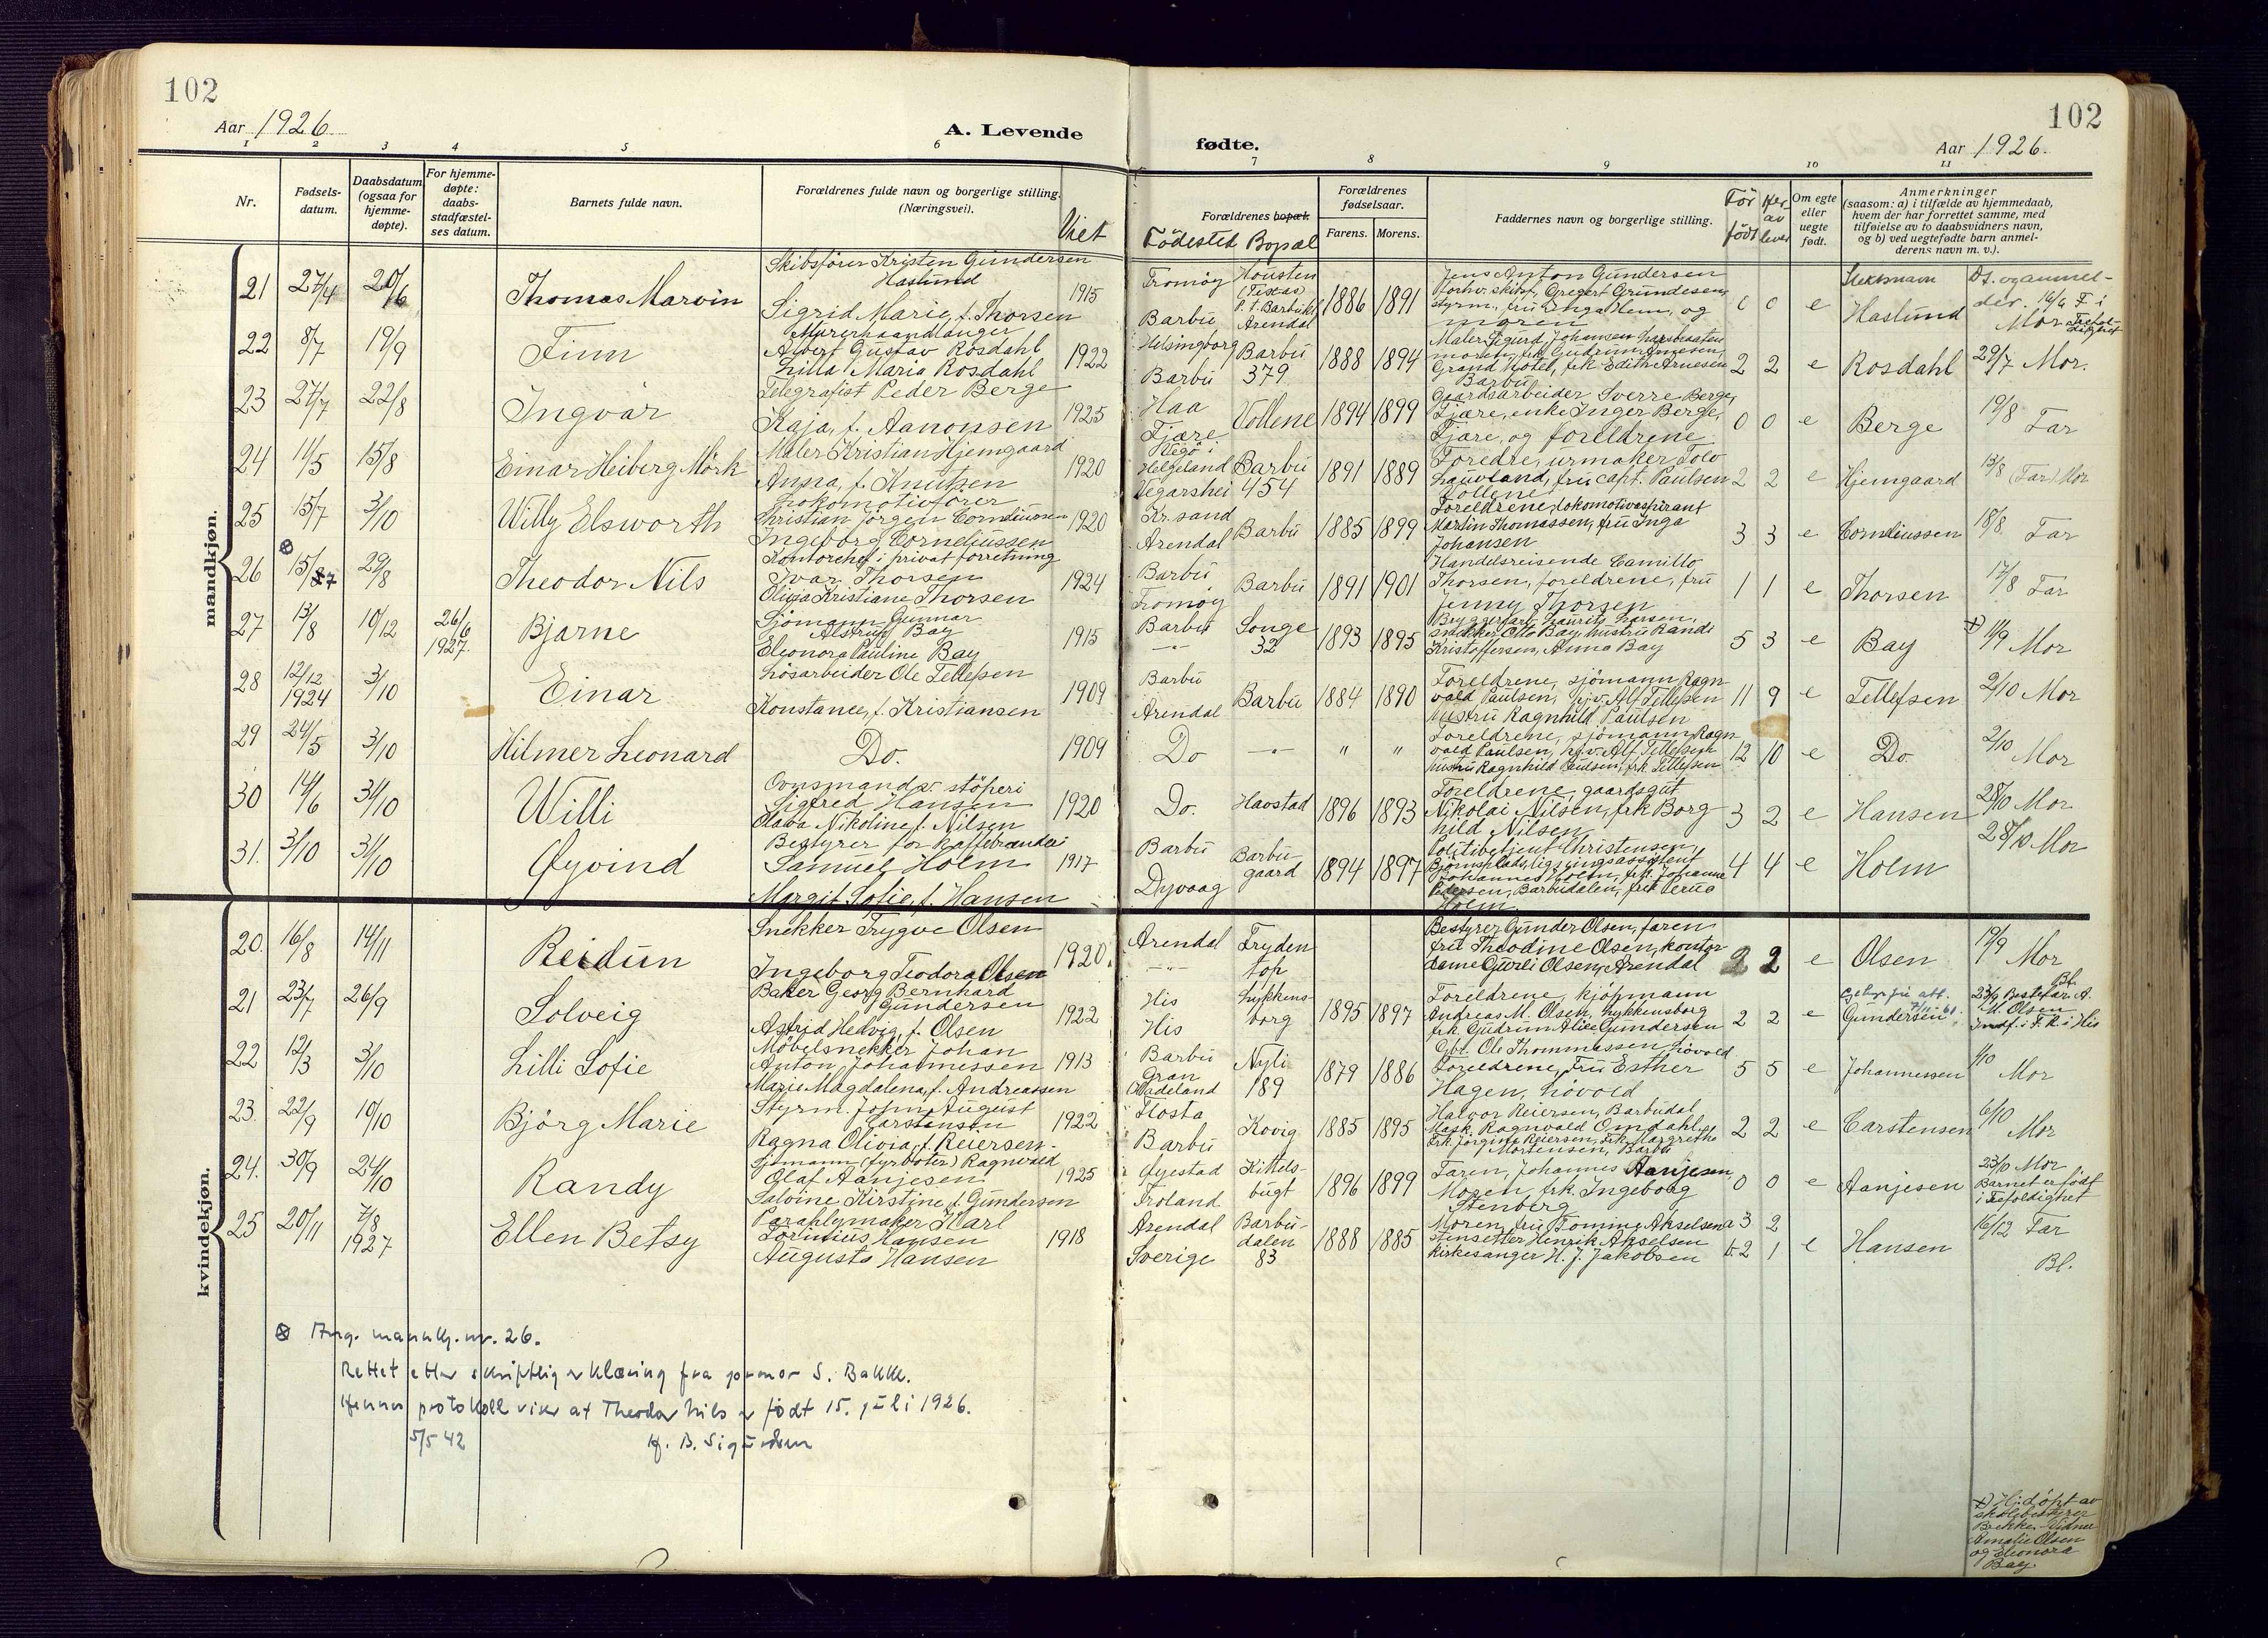 102
102
Aar 1926.
A. Levende
fødte.
Aar 1926.
1 2 3 4 5 6 7 8 9 10 11
Nr.
Fødsels-
datum.
Daabsdatum
(ogsaa for
hjemme-
døpte).
For hjemme-
døpte:
daabs-
stadfæstel-
ses datum.
Barnets fulde navn.
Forældrenes fulde navn og borgerlige stilling.
(Næringsvei).
Viet
Forældrenes bopæl.
Födested Bopæl
Forældrenes
fødselsaar.
Farens. Morens.
Faddernes navn og borgerlige stilling.
Før
født
Her-
av
lever
Om egte
eller
uegte
født.
Anmerkninger
(saasom: a) i tilfælde av hjemmedaab,
hvem der har forrettet samme, med
tilføielse av to daabsvidners navn,
og b) ved uegtefødte barn anmel-
derens navn m. v.).
mandkjøn.
21 27/4 20/6 Thomas Marvin
Skibsfører Kristen Gundersen
Haslund
Sigrid Marie, f. Thorsen
1915
Tromøy
Barbu
Housten
(Texas)
Arendal
1886 1891
Jens Anton Gundersen
moren
0 0 e Haslund
Slektsnavn
22 8/7 19/9 Finn
Murerhaandlanger
Albert Gustav Rosdahl
Lilla Maria Rosdahl
1922
Helsingborg
Barbu
Barbu
379
1888 1894
Maler Sigurd Johansen
Grand Hotel, frk Edith Arnesen
Barbu
2 2 e Rosdahl 29/7 Mor.
23 27/7 22/8 Ingvar
Telegrafist Peder Berge
Kaja, f. Aanonsen
1925
Haa
Fjære
Vollene
1894 1899
Gaardsarbeider Sverre Berge,
Fjære, enke Inger Berge,
Fjære, og foreldrene
0 0 e Berge 19/8 Far
24 11/5 15/8 Einar Heiberg Mörk
Maler Kristian Hjemgaard
Anna, f. Knutsen
1920
Helgeland
Vegarshei
Barbu
454
1891 1889
urmaker Tolv
Lauvland, fru capt. Paulsen
Vollene
2 2 e Hjemgaard 13/8 (Far) Mor
25 15/7 3/10 Willy Elsworth
Lokomotivförer
Christian Jörgen Corneliussen
Ingeborg Corneliussen
1920
Kr.sand
Arendal
Barbu
1885 1899
Foreldrene, lokomotivaspirant
Martin Thomassen, fru Inga
Johansen
3 3 e Corneliussen 18/8 Far
26 15/7 29/8 Theodor Nils
Kontorchef i privat forretning
Ivar Thorsen
Olivia Kristiane Thorsen
1924
Barbu
Tromøy
Barbu
1891 1901
Handelsreisende Camillo
Thorsen, foreldrene, fru
Jenny Thorsen
1 1 e Thorsen 17/8 Far
27 13/8 10/12 26/6
1927. Bjarne
Sjömann Gunnar
Alstrup Bay
Eleonora Pauline Bay
1915
Barbu
Songe
32
1893 1895
Lauritz Larsen,
snekker Otto Bay, hustru Randi
Kristoffersen, Anna Bay
5 3 e Bay 11/9 Mor
28 12/12
1924 3/10 Einar
Lösarbeider Ole Tellefsen
Konstance, f. Kristiansen
1909
Barbu
Arendal
Barbu
1884 1890
Foreldrene, sjömann Ragn
vald Paulsen, Alf Tellefsen
hustru Ragnhild Paulsen
11 9 e Tellefsen 2/10 Mor
29 24/5 3/10 Hilmer Leonard
Do.
1909
Do
" "
Foreldrene, sjömann Ragn
vald Paulsen, Alf Tellefsen
hustru Ragnhild Paulsen, frk Tellefsen
12 10 e Do. 2/10 Mor
30 14/6 31/10 Willi
Ovnsmand v. stöperi
Sigfred Hansen
Olava Nikoline f. Nilsen
1920
Do.
Havstad
1896 1893
Foreldrene, gaardsgut
Nikolai Nilsen, frk Borg
hild Nilsen
3 2 e Hansen 28/10 Mor
31. 3/10 31/10 Øyvind
Bestyrer for kaffebrænderi
Samuel Holm
Margit Sofie, f. Hansen
1917
Barbu
Dyvaag
Barbu
gaard
1894 1897
Politibetjent Christensen,
Johannes Holm, frk Johanne
Pedersen, Barbudalen, frk Verna
Holm
4 4 e Holm 28/10 Mor
kvindekjøn.
20. 16/8 14/11 Reidun
Snekker Trygve Olsen
Ingeborg Teodora Olsen
1920.
Arendal
Fryden
top
Bestyrer Gunder Olsen, faren
fru Theodine Olsen, kontor
dame Gurli Olsen, Arendal
2 2 e Olsen 19/9 Mor
21 23/7 26/9 Solveig
Baker Georg Bernhard
Gundersen
Astrid Hedvig, f. Olsen
1922
His
His
Lykkens-
borg
1895 1897
Foreldrene, kjöpmann
Andreas M. Olsen, Lykkensborg
frk. Gudrun Alice Gundersen
2 2 e Gundersen
23/9 Bestefar A.
M. Olsen
Indf. i F.R i His
22 12/3 3/10 Lilli Sofie
Möbelsnekker Johan
Anton Johannessen
Marie Magdalena, f. Andreassen
1913
Barbu
Gran
Hadeland
Nyli
189
1879 1886
Gbr. Ole Thommassen Lövold
Foreldrene, Fru Esther
Hagen, Lövold
5 5 e Johannessen 1/10 Mor
23. 22/9 10/10 Björg Marie
Styrm. John August
Carstensen
Ragna Olivia, f. Reiersen
1922
Flosta
Barbu
Kovig
1885 1895
Halvor Reiersen, Barbudal
Mask. Ragnvald Omdahl
Frk Jörgine Reiersen, Frk. Margrethe
Mortensen, Barbu
2 2 e Carstensen 6/10 Mor
24. 30/9 24/10 Randy
Sjömann (fyrböter) Ragnvald
Olaf Aanjesen
Salvine Kirstine, f. Gundersen
1925
Øyestad
Froland
Kittels-
bugt
1896 1899
Faren, Johannes Aanjesen,
Moren, frk. Ingeborg
Stenberg
0 0 e Aanjesen
23/10 Mor
Barnet er født
i Trefoldighet
25 20/11 7/8
1927 Ellen Betsy
Paraplymaker Karl
Hansen
Augusta Hansen
1918
Arendal
Sverige
Barbu-
dalen
83
1888 1885
Moren, fru Tomme Akselsen
stensetter Henrik Akselsen
kirkesanger H. J. Jakobsen
a 3 2
b. 2 1 e Hansen 16/12 Far
Bl.
⊗ Ang. mannkj. nr. 26.
Rettet etter skriftlig erklæring fra jormor S. Bakke.
Hennes protokoll viser at Theodor Nils er født 15. juli 1926.
5/5 42 Kf. B. Sigurdsen
Hj.döpt av
skolebestyrer
Brekke. Vidner
Amalie Olsen
og Eleonora
Bay.